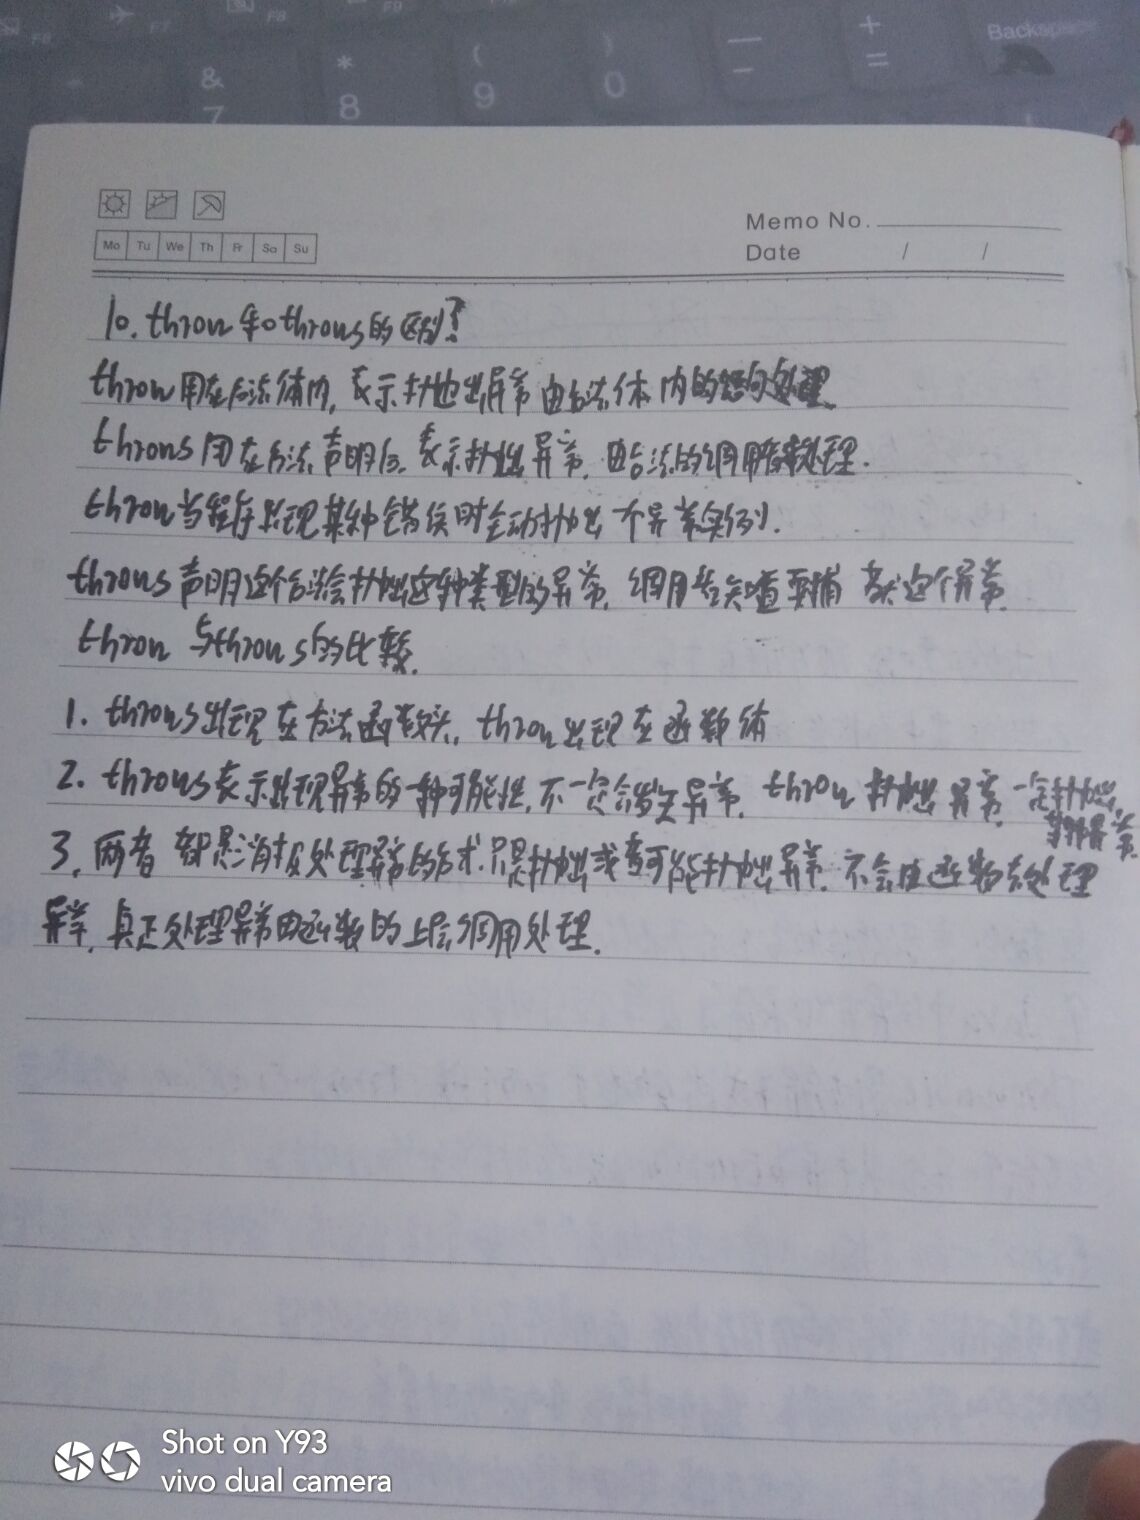 F6
F7
F8
F9
& 7
* 8
( 9
) 0
— -
+ =
Backspace
Memo No.
Mo Tu We Th Fr Sa Su
Date / /
10. throw和throws的区别?
throw用在方法体内, 表示抛出异常 由方法体内的语句处理
throws用在方法声明后, 表示抛出异常, 由方法的调用者处理.
throw当程序出现某种错误时主动抛出一个异常实例.
throws声明这个方法会抛出这种类型的异常, 调用者知道要捕获这个异常.
throw 与throws的比较.
1. throws出现在方法函数头, throw出现在函数体
2. throws表示出现异常的一种可能性, 不一定会发生异常, throw 抛出异常, 一定抛出,
某种异常
3. 两者都是消极处理异常的方式.只是抛出或者可能抛出异常. 不会由函数去处理
异常, 真正处理异常由函数的上层调用处理.
Shot on Y93
vivo dual camera